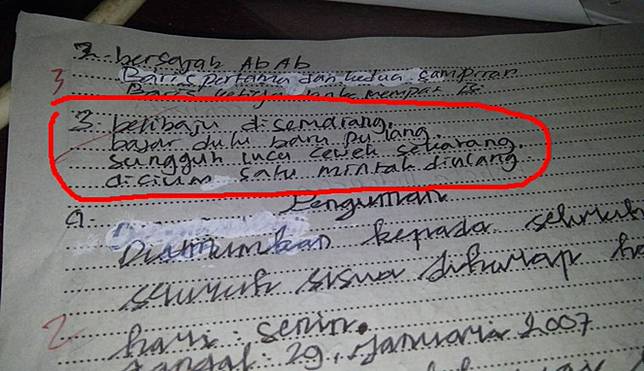 2. bersajak AbAb
3
Baris pertama dan kedua sampiran
Baris
3. beli baju disemarang.
bajar dulu baru pulang.
sungguh lucu cewek sekarang.
dicium satu mintak diulang
9. Pengumman
Diumumkan kepada seluruh
seluruh siswa diharap ha
2
hari : senin.
tanggal : 29, januari 2007